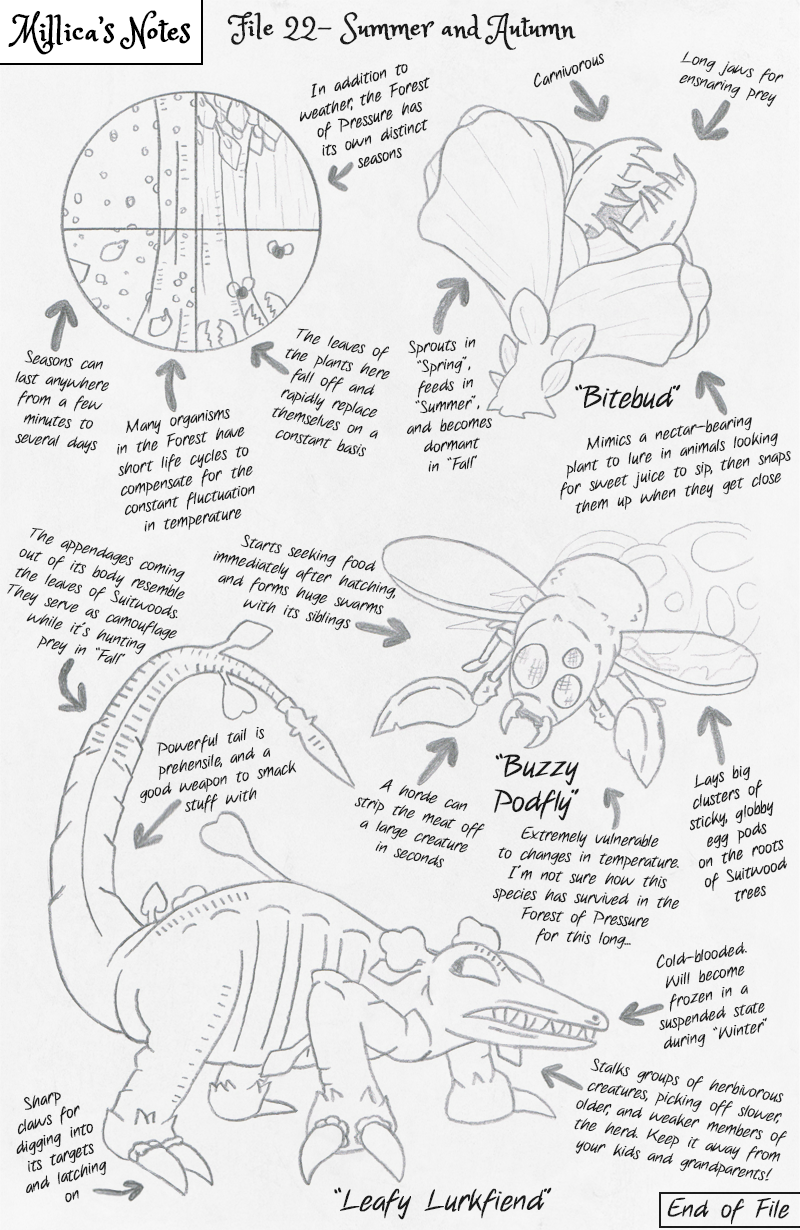 Millica's Notes
File 22– Summer and Autumn
In addition to
weather, the Forest
of Pressure has
its own distinct
seasons
Carnivorous
Long jaws for
ensnaring prey
Seasons can
last anywhere
from a few
minutes to
several days
Many organisms
in the Forest have
short life cycles to
compensate for the
constant fluctuation
in temperature
The leaves of
the plants here
fall off and
rapidly replace
themselves on a
constant basis
Sprouts in
"Spring",
feeds in
"Summer",
and becomes
dormant
in "Fall"
"Bitebud"
Mimics a nectar-bearing
plant to lure in animals looking
for sweet juice to sip, then snaps
them up when they get close
The appendages coming
out of its body resemble
the leaves of Suitwoods.
They serve as camouflage
while it's hunting
prey in "Fall"
Starts seeking food
immediately after hatching,
and forms huge swarms
with its siblings
Powerful tail is
prehensile, and a
good weapon to smack
stuff with
A horde can
strip the meat off
a large creature
in seconds
"Buzzy
Podfly"
Extremely vulnerable
to changes in temperature.
I'm not sure how this
species has survived in the
Forest of Pressure
for this long...
Lays big
clusters of
sticky, globby
egg pods
on the roots
of Suitwood
trees
Cold-blooded.
Will become
frozen in a
suspended state
during "Winter"
Stalks groups of herbivorous
creatures, picking off slower,
older, and weaker members of
the herd. Keep it away from
your kids and grandparents!
Sharp
claws for
digging into
its targets
and latching
on
"Leafy Lurkfiend"
End of File